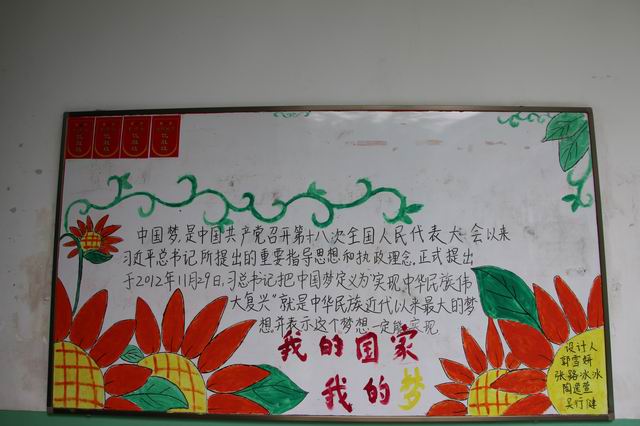 中国梦,是中国共产党召开第十八次全国人民代表大会以来
习近平总书记所提出的重要指导思想和执政理念,正式提出
于2012年11月29日,习总书记把"中国梦"定义为"实现中华民族伟
大复兴"就是中华民族近代以来最大的梦
想,并表示这个梦想一定能实现
我的国家
我的梦
设计人
郭雪妍
张路冰冰
陶莲萱
吴行健